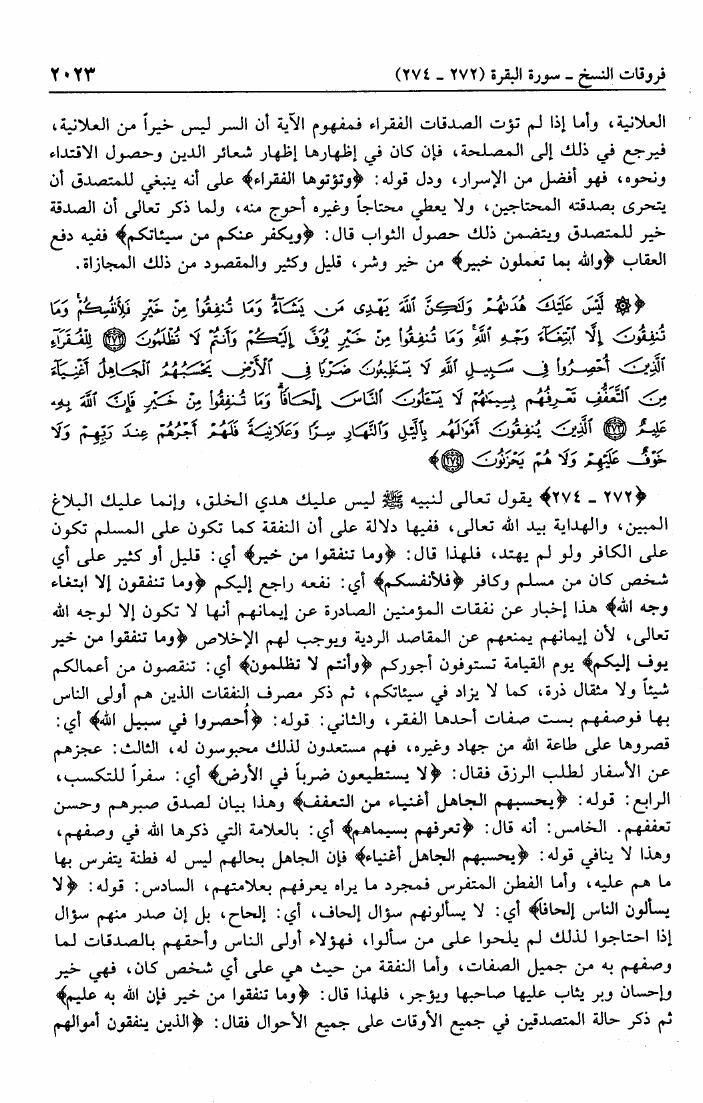 فروقات النسخ ـ سورة البقرة (٢٧٢ ـ ٢٧٤)
٢٠٢٣
العلانية، وأما إذا لم تؤت الصدقات الفقراء فمفهوم الآية أن السر ليس خيراً من العلانية،
فيرجع في ذلك إلى المصلحة، فإن كان في إظهارها إظهار شعائر الدين وحصول الاقتداء
ونحوه، فهو أفضل من الإسرار، ودل قوله: ﴿وتؤتوها الفقراء﴾ على أنه ينبغي للمتصدق أن
يتحرى بصدقته المحتاجين، ولا يعطي محتاجاً وغيره أحوج منه، ولما ذكر تعالى أن الصدقة
خير للمتصدق ويتضمن ذلك حصول الثواب قال: ﴿ويكفر عنكم من سيئاتكم﴾ ففيه دفع
العقاب ﴿والله بما تعملون خبير﴾ من خير وشر، قليل وكثير والمقصود من ذلك المجازاة.
﴿۞ لَيْسَ عَلَيْكَ هُدَىٰهُمْ وَلَٰكِنَّ ٱللَّهَ يَهْدِى مَن يَشَآءُ وَمَا تُنفِقُوا۟ مِنْ خَيْرٍ فَلِأَنفُسِكُمْ وَمَا
تُنفِقُونَ إِلَّا ٱبْتِغَآءَ وَجْهِ ٱللَّهِ وَمَا تُنفِقُوا۟ مِنْ خَيْرٍ يُوَفَّ إِلَيْكُمْ وَأَنتُمْ لَا تُظْلَمُونَ ۝٢٧٢ لِلْفُقَرَآءِ
ٱلَّذِينَ أُحْصِرُوا۟ فِى سَبِيلِ ٱللَّهِ لَا يَسْتَطِيعُونَ ضَرْبًا فِى ٱلْأَرْضِ يَحْسَبُهُمُ ٱلْجَاهِلُ أَغْنِيَآءَ
مِنَ ٱلتَّعَفُّفِ تَعْرِفُهُم بِسِيمَٰهُمْ لَا يَسْـَٔلُونَ ٱلنَّاسَ إِلْحَافًا وَمَا تُنفِقُوا۟ مِنْ خَيْرٍ فَإِنَّ ٱللَّهَ بِهِۦ
عَلِيمٌ ۝٢٧٣ ٱلَّذِينَ يُنفِقُونَ أَمْوَٰلَهُم بِٱلَّيْلِ وَٱلنَّهَارِ سِرًّا وَعَلَانِيَةً فَلَهُمْ أَجْرُهُمْ عِندَ رَبِّهِمْ وَلَا
خَوْفٌ عَلَيْهِمْ وَلَا هُمْ يَحْزَنُونَ ۝٢٧٤﴾
﴿٢٧٢ ـ ٢٧٤﴾ يقول تعالى لنبيه ﷺ ليس عليك هدي الخلق، وإنما عليك البلاغ
المبين، والهداية بيد الله تعالى، ففيها دلالة على أن النفقة كما تكون على المسلم تكون
على الكافر ولو لم يهتد، فلهذا قال: ﴿وما تنفقوا من خير﴾ أي: قليل أو كثير على أي
شخص كان من مسلم وكافر ﴿فلأنفسكم﴾ أي: نفعه راجع إليكم ﴿وما تنفقون إلا ابتغاء
وجه الله﴾ هذا إخبار عن نفقات المؤمنين الصادرة عن إيمانهم أنها لا تكون إلا لوجه الله
تعالى، لأن إيمانهم يمنعهم عن المقاصد الردية ويوجب لهم الإخلاص ﴿وما تنفقوا من خير
يوف إليكم﴾ يوم القيامة تستوفون أجوركم ﴿وأنتم لا تظلمون﴾ أي: تنقصون من أعمالكم
شيئاً ولا مثقال ذرة، كما لا يزاد في سيئاتكم، ثم ذكر مصرف النفقات الذين هم أولى الناس
بها فوصفهم بست صفات أحدها الفقر، والثاني: قوله: ﴿أُحصروا في سبيل الله﴾ أي:
قصروها على طاعة الله من جهاد وغيره، فهم مستعدون لذلك محبوسون له، الثالث: عجزهم
عن الأسفار لطلب الرزق فقال: ﴿لا يستطيعون ضرباً في الأرض﴾ أي: سفراً للتكسب،
الرابع: قوله: ﴿يحسبهم الجاهل أغنياء من التعفف﴾ وهذا بيان لصدق صبرهم وحسن
تعففهم. الخامس: أنه قال: ﴿تعرفهم بسيماهم﴾ أي: بالعلامة التي ذكرها الله في وصفهم،
وهذا لا ينافي قوله: ﴿يحسبهم الجاهل أغنياء﴾ فإن الجاهل بحالهم ليس له فطنة يتفرس بها
ما هم عليه، وأما الفطن المتفرس فمجرد ما يراه يعرفهم بعلامتهم، السادس: قوله: ﴿لا
يسألون الناس إلحافاً﴾ أي: لا يسألونهم سؤال إلحاف، أي: إلحاح، بل إن صدر منهم سؤال
إذا احتاجوا لذلك لم يلحوا على من سألوا، فهؤلاء أولى الناس وأحقهم بالصدقات لما
وصفهم به من جميل الصفات، وأما النفقة من حيث هي على أي شخص كان، فهي خير
وإحسان وبر يثاب عليها صاحبها ويؤجر، فلهذا قال: ﴿وما تنفقوا من خير فإن الله به عليم﴾
ثم ذكر حالة المتصدقين في جميع الأوقات على جميع الأحوال فقال: ﴿الذين ينفقون أموالهم